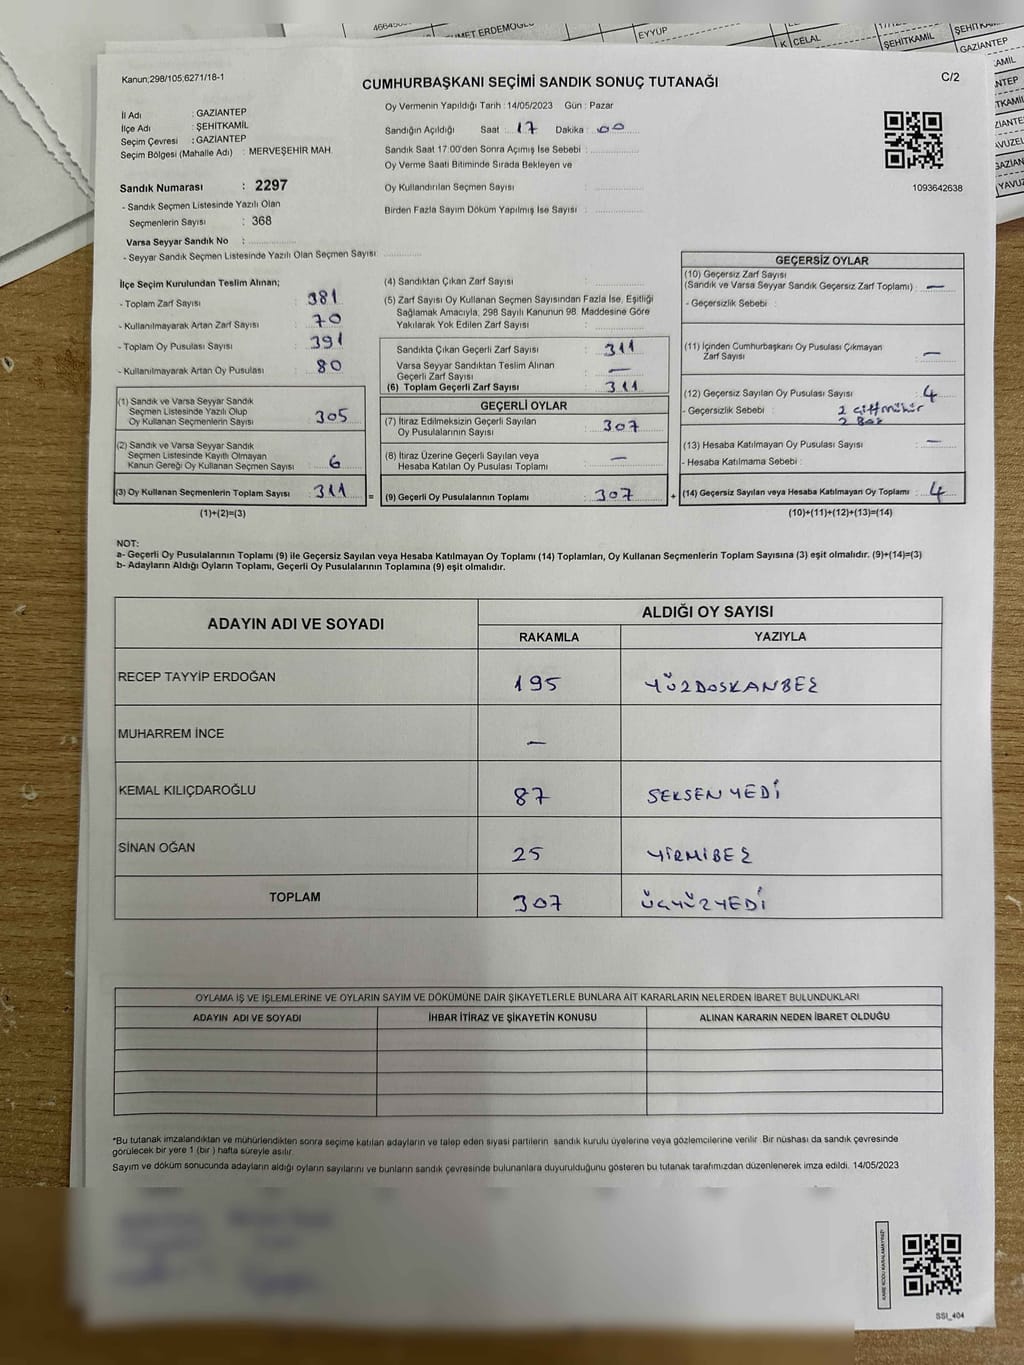 EYYUP
K CELAL
ŞEHİTKAMİL
GAZİANTEP
Kanun;298/105;6271/18-1
CUMHURBAŞKANI SEÇİMİ SANDIK SONUÇ TUTANAĞI
C/2
İl Adı : GAZİANTEP
İlçe Adı : ŞEHİTKAMİL
Seçim Çevresi : GAZİANTEP
Seçim Bölgesi (Mahalle Adı) : MERVEŞEHİR MAH.
Oy Vermenin Yapıldığı Tarih : 14/05/2023 Gün : Pazar
Sandığın Açıldığı Saat : 17 Dakika : 00
Sandık Saat 17:00'den Sonra Açımış İse Sebebi :
Oy Verme Saati Bitiminde Sırada Bekleyen ve
Oy Kullandırılan Seçmen Sayısı :
Birden Fazla Sayım Döküm Yapılmış İse Sayısı :
1093642638
Sandık Numarası : 2297
- Sandık Seçmen Listesinde Yazılı Olan
Seçmenlerin Sayısı : 368
Varsa Seyyar Sandık No :
- Seyyar Sandık Seçmen Listesinde Yazılı Olan Seçmen Sayısı:
İlçe Seçim Kurulundan Teslim Alınan;
- Toplam Zarf Sayısı : 381
- Kullanılmayarak Artan Zarf Sayısı : 70
- Toplam Oy Pusulası Sayısı : 391
- Kullanılmayarak Artan Oy Pusulası : 80
(1) Sandık ve Varsa Seyyar Sandık
Seçmen Listesinde Yazılı Olup
Oy Kullanan Seçmenlerin Sayısı : 305
(2) Sandık ve Varsa Seyyar Sandık
Seçmen Listesinde Kayıtlı Olmayan
Kanun Gereği Oy Kullanan Seçmen Sayısı : 6
(3) Oy Kullanan Seçmenlerin Toplam Sayısı : 311 =
(1)+(2)=(3)
(4) Sandıktan Çıkan Zarf Sayısı :
(5) Zarf Sayısı Oy Kullanan Seçmen Sayısından Fazla İse, Eşitliği
Sağlamak Amacıyla, 298 Sayılı Kanunun 98. Maddesine Göre
Yakılarak Yok Edilen Zarf Sayısı :
Sandıkta Çıkan Geçerli Zarf Sayısı : 311
Varsa Seyyar Sandıktan Teslim Alınan
Geçerli Zarf Sayısı : —
(6) Toplam Geçerli Zarf Sayısı : 311
GEÇERLİ OYLAR
(7) İtiraz Edilmeksizin Geçerli Sayılan
Oy Pusulalarının Sayısı : 307
(8) İtiraz Üzerine Geçerli Sayılan veya
Hesaba Katılan Oy Pusulası Toplamı : —
(9) Geçerli Oy Pusulalarının Toplamı : 307 +
GEÇERSİZ OYLAR
(10) Geçersiz Zarf Sayısı
(Sandık ve Varsa Seyyar Sandık Geçersiz Zarf Toplamı) : —
- Geçersizlik Sebebi :
(11) İçinden Cumhurbaşkanı Oy Pusulası Çıkmayan
Zarf Sayısı : —
(12) Geçersiz Sayılan Oy Pusulası Sayısı : 4
- Geçersizlik Sebebi : 2 çift mühür
2 Boş
(13) Hesaba Katılmayan Oy Pusulası Sayısı : —
- Hesaba Katılmama Sebebi :
(14) Geçersiz Sayılan veya Hesaba Katılmayan Oy Toplamı : 4
(10)+(11)+(12)+(13)=(14)
NOT:
a- Geçerli Oy Pusulalarının Toplamı (9) ile Geçersiz Sayılan veya Hesaba Katılmayan Oy Toplamı (14) Toplamları, Oy Kullanan Seçmenlerin Toplam Sayısına (3) eşit olmalıdır. (9)+(14)=(3)
b- Adayların Aldığı Oyların Toplamı, Geçerli Oy Pusulalarının Toplamına (9) eşit olmalıdır.
ADAYIN ADI VE SOYADI
ALDIĞI OY SAYISI
RAKAMLA YAZIYLA
RECEP TAYYİP ERDOĞAN 195 YÜZDOSKANBEŞ
MUHARREM İNCE —
KEMAL KILIÇDAROĞLU 87 SEKSENYEDİ
SİNAN OĞAN 25 YİRMİBEŞ
TOPLAM 307 ÜÇYÜZYEDİ
OYLAMA İŞ VE İŞLEMLERİNE VE OYLARIN SAYIM VE DÖKÜMÜNE DAİR ŞİKAYETLERLE BUNLARA AİT KARARLARIN NELERDEN İBARET BULUNDUKLARI
ADAYIN ADI VE SOYADI İHBAR İTİRAZ VE ŞİKAYETİN KONUSU ALINAN KARARIN NEDEN İBARET OLDUĞU
*Bu tutanak imzalandıktan ve mühürlendikten sonra seçime katılan adayların ve talep eden siyasi partilerin sandık kurulu üyelerine veya gözlemcilerine verilir. Bir nüshası da sandık çevresinde
görülecek bir yere 1 (bir ) hafta süreyle asılır.
Sayım ve döküm sonucunda adayların aldığı oyların sayılarını ve bunların sandık çevresinde bulunanlara duyurulduğunu gösteren bu tutanak tarafımızdan düzenlenerek imza edildi. 14/05/2023
KARE KODU KARALAMAYINIZ!
SSİ_404